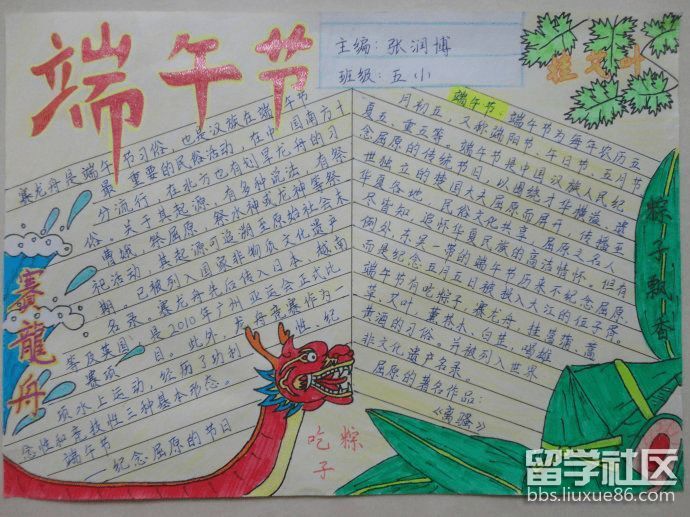 端午节
主编：张润博
班级：五小
挂艾叶
赛龙舟是端午节习俗，也是汉族在端午节
最重要的民俗活动，在中国南方十
分流行，在北方也有划旱龙舟的习
俗。关于其起源，有多种说法，有祭
曹娥，祭屈原，祭水神或龙神等祭
祀活动，其起源可追溯至原始社会末
期。已被列入国家非物质文化遗产
名录。赛龙舟先后传入日本、越南
等及英国，是2010年广州亚运会正式比
赛项目。此外，龙舟竞赛作为一
项水上运动，经历了功利性、纪
念性和竞技性三种基本形态。
端午节
——纪念屈原的节日
赛龍舟
端午节：端午节为每年农历五
月初五，又称端阳节、午日节、五月节
夏五、重五等。端午节是中国汉族人民纪
念屈原的传统节日，以围绕才华横溢、遗
世独立的楚国大夫屈原而展开，传播至
华夏各地，民俗文化共享，屈原之名人
尽皆知，追怀华夏民族的高洁情怀。但有
例外，东吴一带的端午节历来不纪念屈原，
而是纪念五月五日被投入大江的伍子胥。
端午节有吃粽子，赛龙舟，挂菖蒲、蒿
草、艾叶，薰苍术、白芷，喝雄
黄酒的习俗。并被列入世界
非文化遗产名录。
屈原的著名作品：
《离骚》
粽子飘香
吃粽子
留学社区
bbs.liuxue86.com